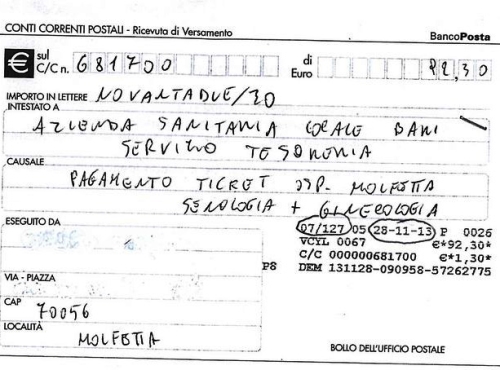 CONTI CORRENTI POSTALI - Ricevuta di Versamento BancoPosta
€ sul C/C n. 681700 di Euro 92,30
IMPORTO IN LETTERE NOVANTADUE/30
INTESTATO A
AZIENDA SANITARIA LOCALE BARI
SERVIZIO TESORERIA
CAUSALE
PAGAMENTO TICKET OSP. MOLFETTA
SENOLOGIA + GINECOLOGIA
ESEGUITO DA
07/127 05 28-11-13 P 0026
VCYL 0067 €*92,30*
C/C 000000681700 €*1,30*
P8 DEM 131128-090958-57262775
VIA - PIAZZA
CAP
70056
LOCALITÀ
MOLFETTA
BOLLO DELL'UFFICIO POSTALE